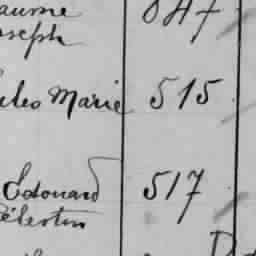 aume 847
oseph
ules Marie 515
Edouard 517
élestin